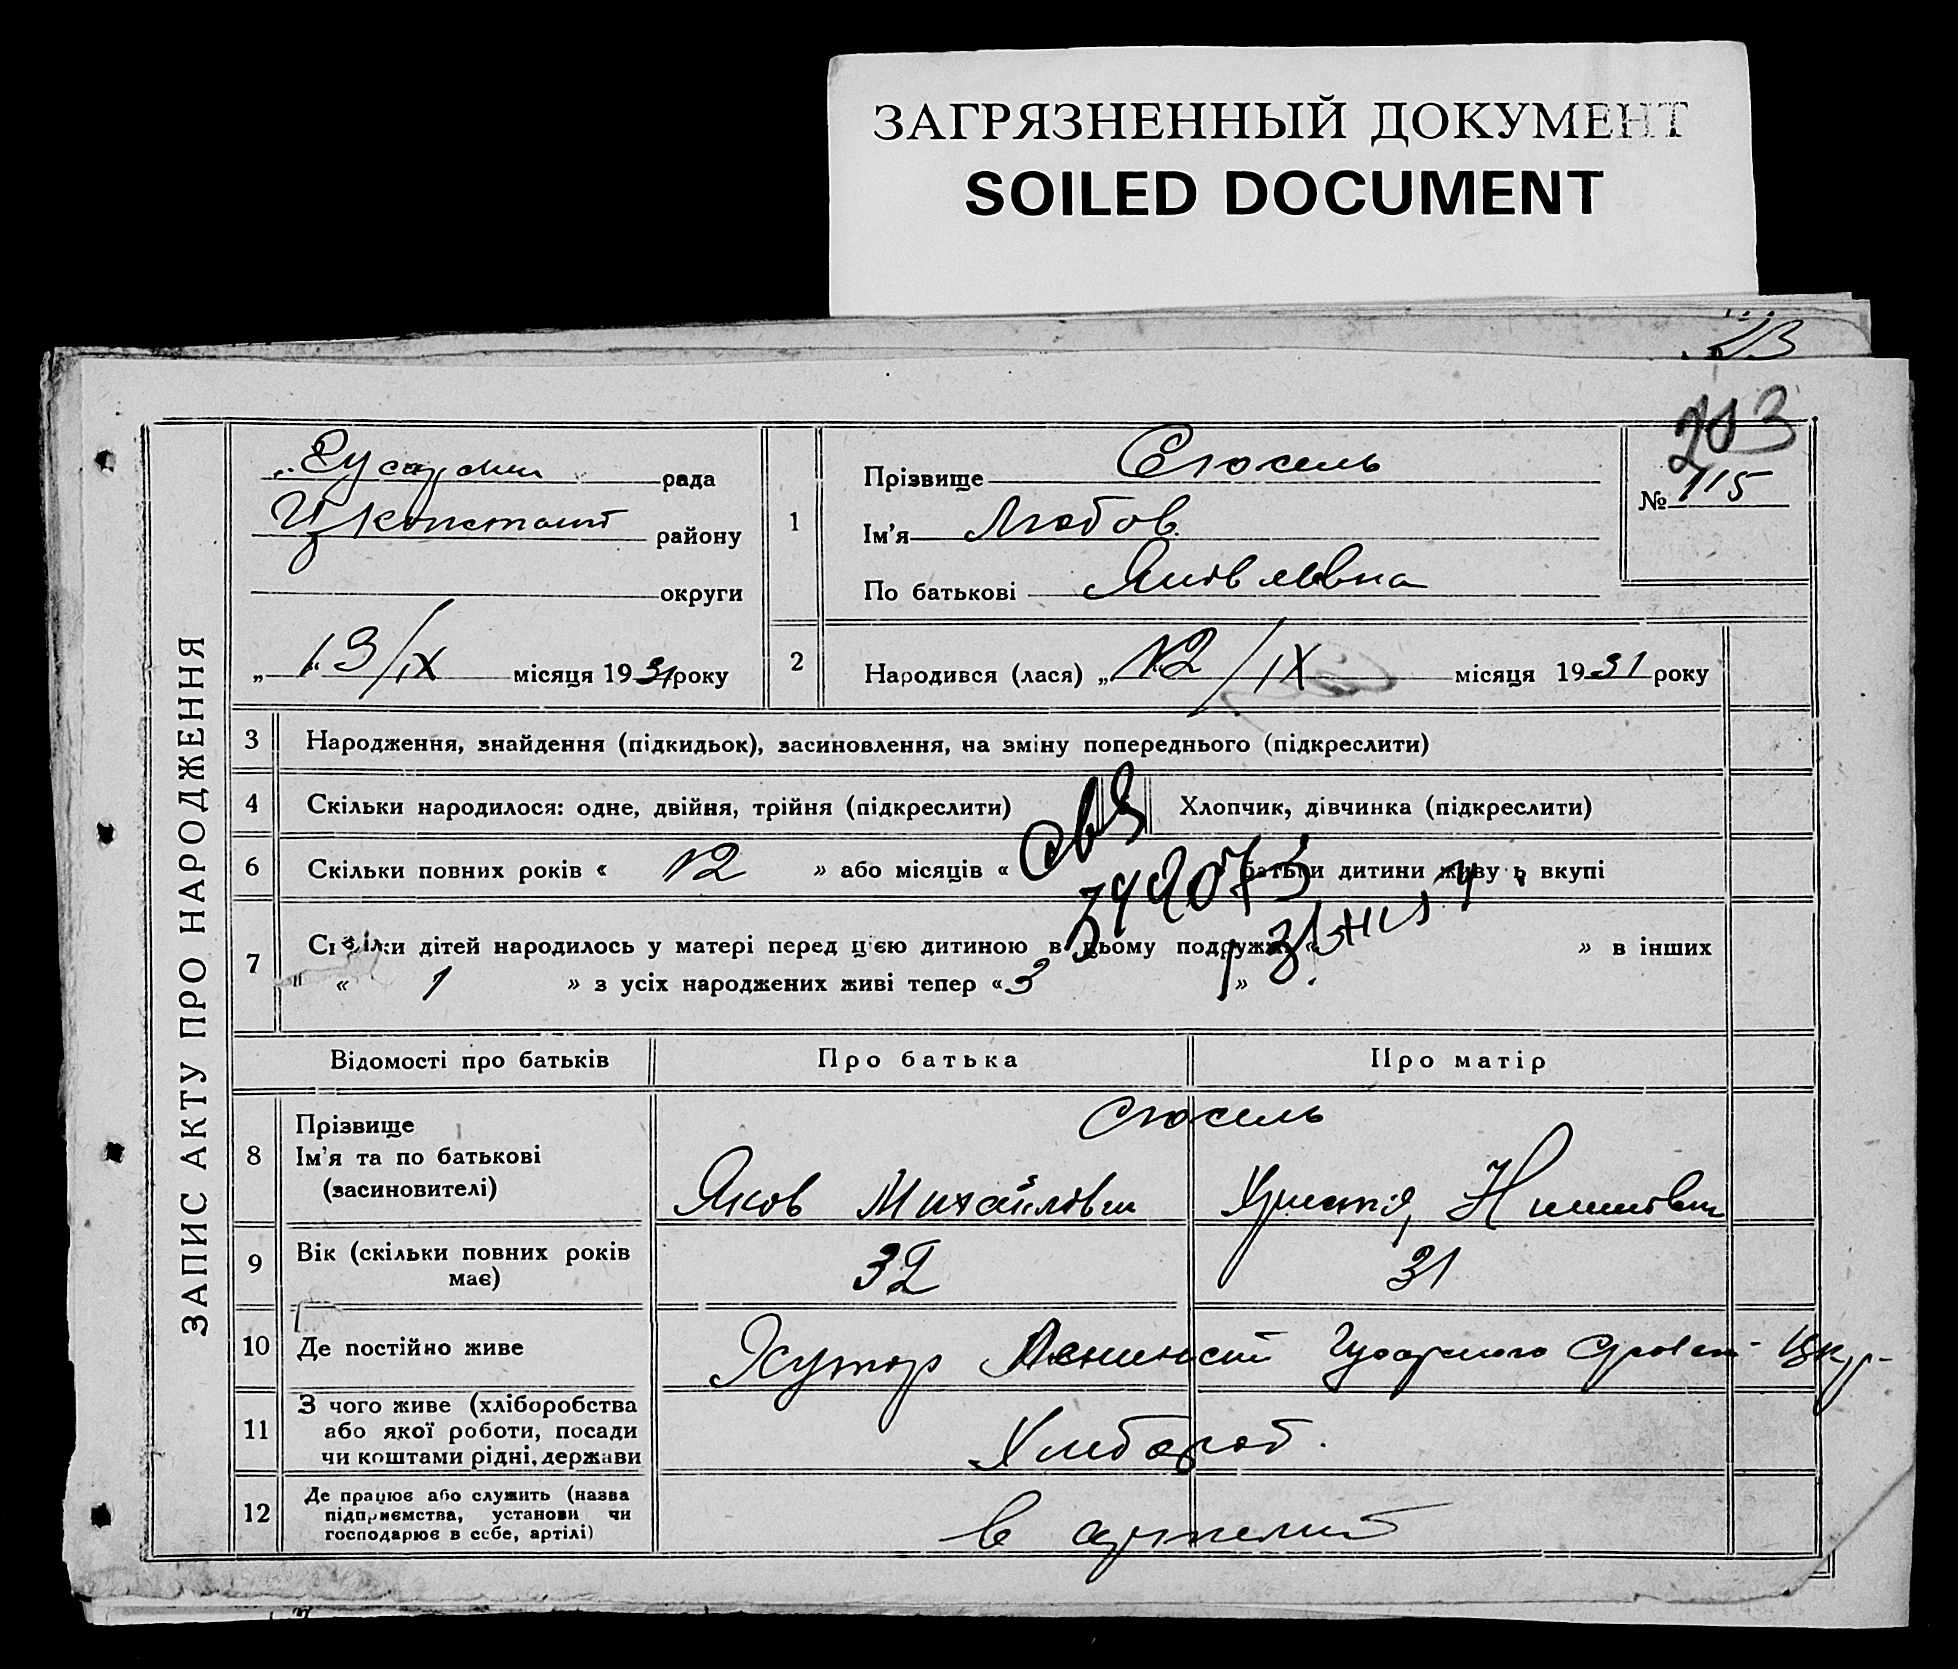 ЗАГРЯЗНЕННЫЙ ДОКУМЕНТ
SOILED DOCUMENT
13
203
ЗАПИС АКТУ ПРО НАРОДЖЕННЯ
рада
району
округи
„13/IX місяця 1931 року
1
Прізвище Стюсель
Ім'я Любов
По батькові Яковлевна
№ 115
2
Народився (лася) „12/IX місяця 1931 року
3 Народження, знайдення (підкидьок), засиновлення, на зміну попереднього (підкреслити)
4 Скільки народилося: одне, двійня, трійня (підкреслити) Хлопчик, дівчинка (підкреслити)
6 Скільки повних років « 12 » або місяців « батьки дитини живуть вкупі
7 Скільки дітей народилось у матері перед цією дитиною в цьому подружжі « » в інших
« 1 » з усіх народжених живі тепер « 3 »
Відомості про батьків Про батька Про матір
8 Прізвище
Ім'я та по батькові
(засиновителі)
Стюсель
Яков Михайлович Христя
9 Вік (скільки повних років має) 32 31
10 Де постійно живе Хутор
11 З чого живе (хліборобства
або якої роботи, посади
чи коштами рідні, держави
Хлибороб.
12 Де працює або служить (назва
підприємства, установи чи
господарює в себе, артілі)
в артелит